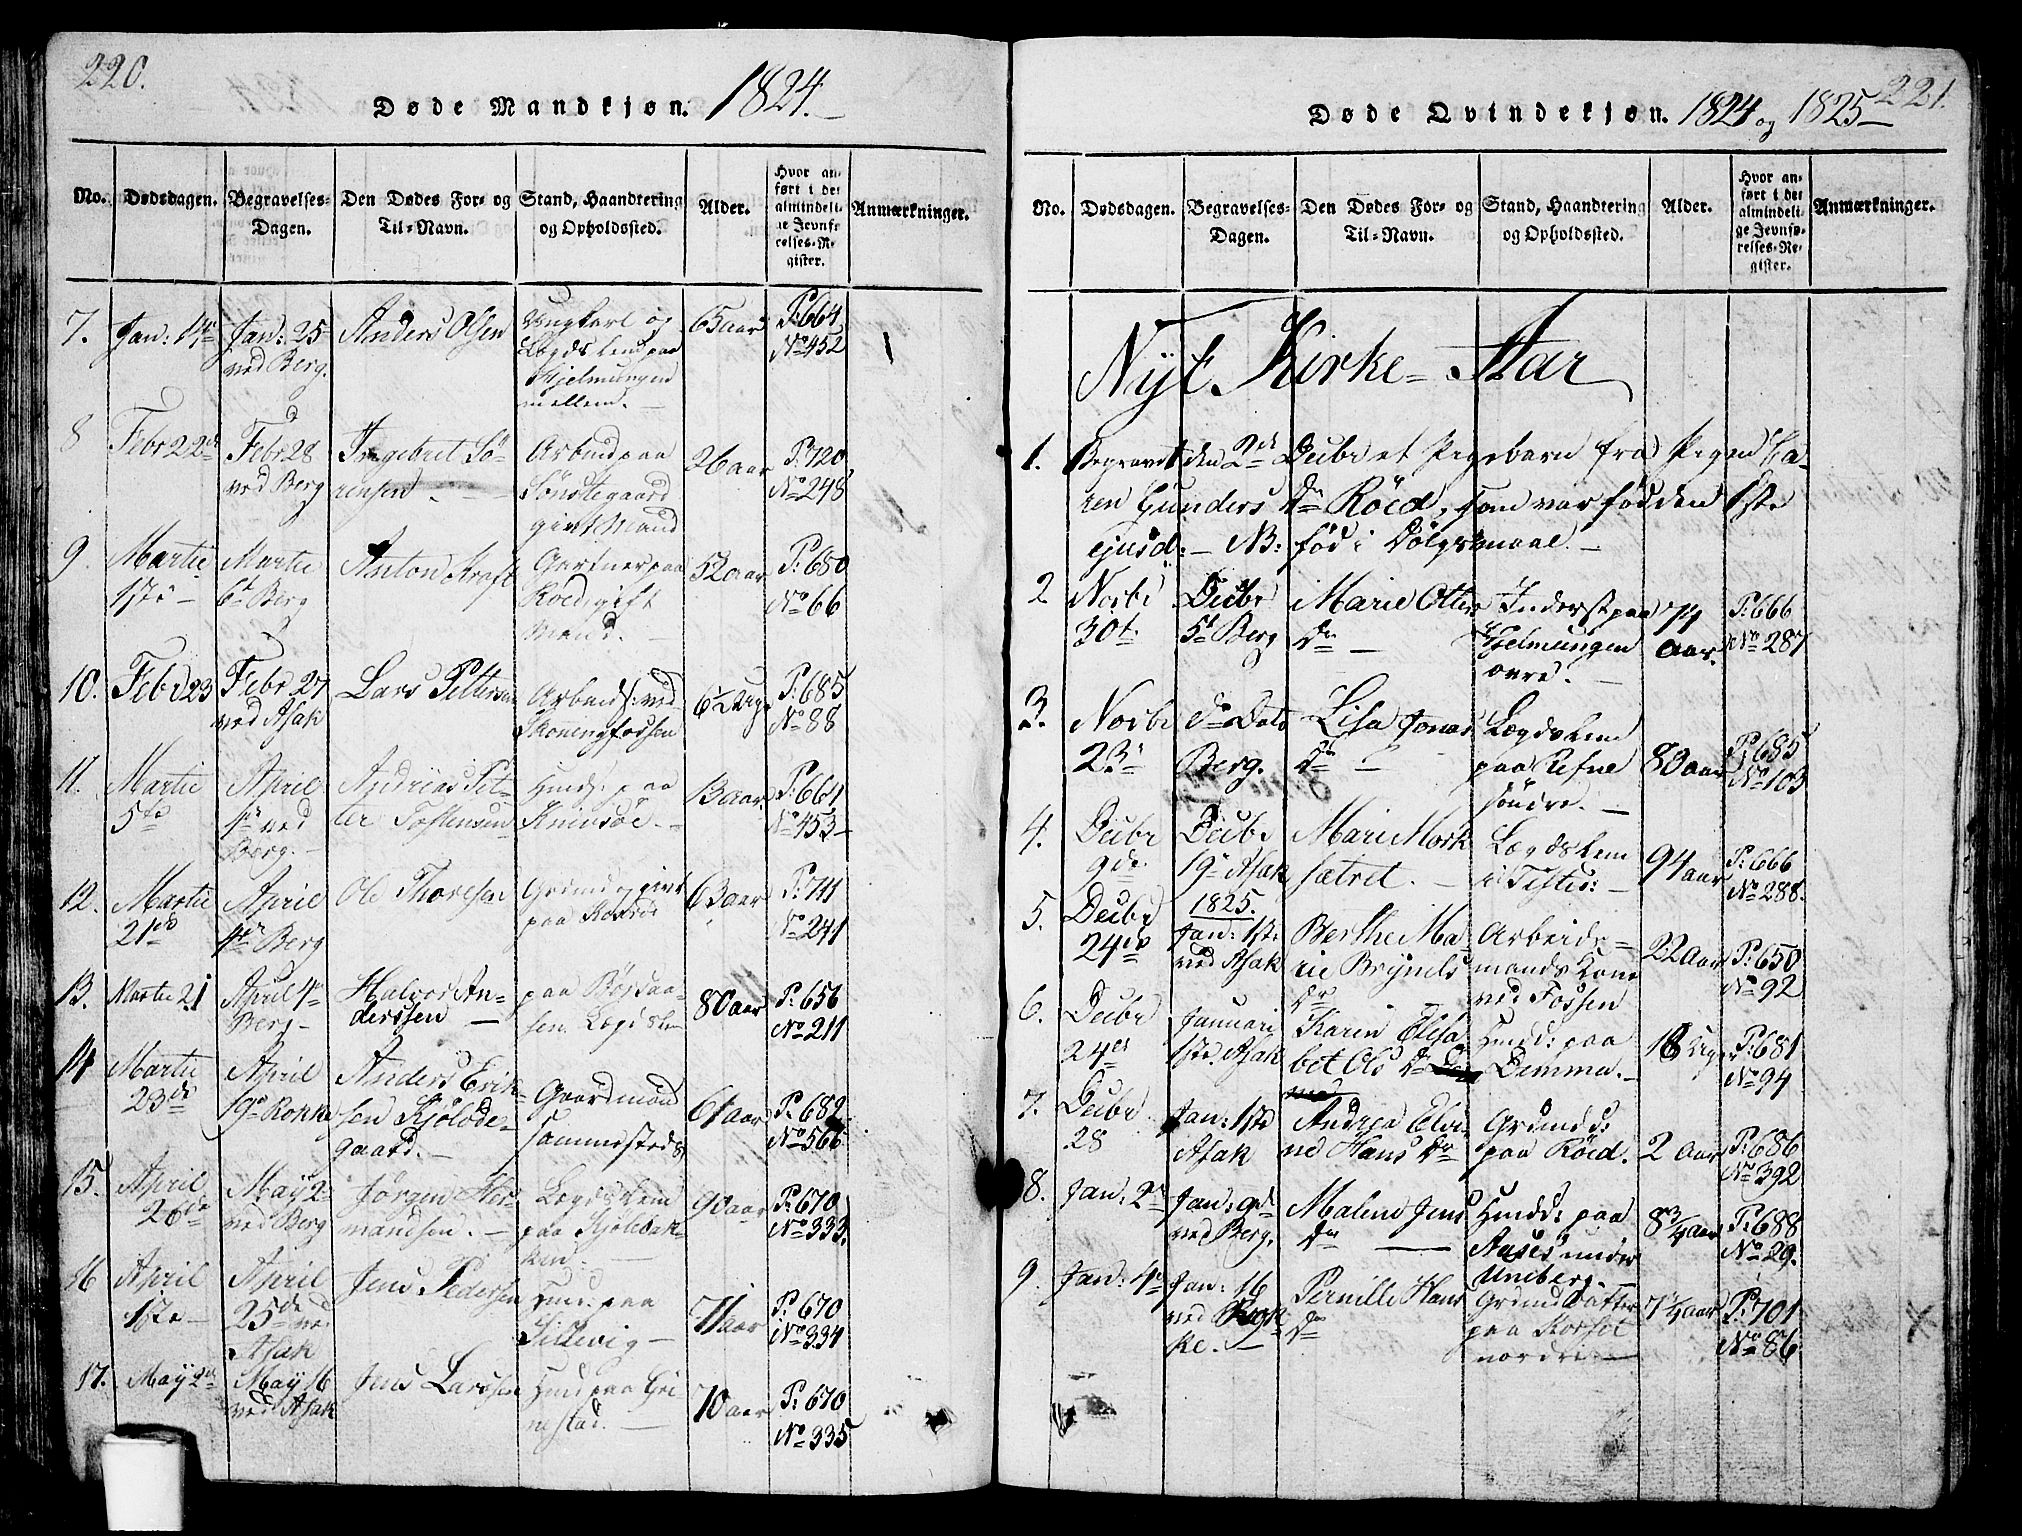 220.
Døde Mandkjøn. 1824.
No. Dødsdagen. Begravelses-Dagen. Den Dødes For- og Til-Navn. Stand, Haandtering og Opholdssted. Alder. Hvor anført i det almindelige Jevnførelses-Register. Anmærkninger.
7. Jan: 17 Jan: 25 ved Berg. Anders Olsen Ungkarl og Lægdslem paa Hjelmungen mellem. 65 aar P: 664 No 452
8 Febr 22de Febr 28 ved Berg Ingebret Sörensen Arbeid paa Sönstegaard gift Mand 26 aar P: 720 No 248
9. Martii 1ste Martii 6t Berg Anton Kraft Gartner paa Röed gift Mand. 52 aar P: 680 No 66
10. Feb: 23 Febr 27 ved Asak Lars Pettersen Arbeids: ved Skoningfossen 6½ Uge P: 685 No 88
11. Martii 5te April 4de ved Berg. Andreas Petter Tostensen Huusm: paa Knivsöe 13 aar P: 664 No 453
12. Martii 21de April 4de Berg Ole Thoresen Grund: gift paa 63 aar P: 741 No 241
13. Martii 21 April 4de Berg Halvor Anderssen paa Lægdslem 80 aar P: 656 No 211
14 Martii 23de April 19de Rokke Anders Eriksen Kjölödegaard. Gaardmand sammesteds 61 aar P: 689 No 566
15. April 26de May 2 ved Berg Jörgen Hermandsen. Lægdslem paa 90 aar P: 670 No 333.
16 April 17de April 25de ved Asak Jens Pedersen Huus: paa Sillevig 71 aar P: 670 No 334
17. May 2de May 16 ved Asak Jens Larssen Huus paa Grinestad. 70 aar P: 670 No 335
221.
Døde Qvindekjøn. 1824 og 1825
No. Dødsdagen. Begravelses-Dagen. Den Dødes For- og Til-Navn. Stand, Haandtering og Opholdssted. Alder. Hvor anført i det almindelige Jevnførelses-Register. Anmærkninger.
Nyt Kirke-Aar
1. Begravet den 2de Decbr et Pigebarn fra Pigen Karen Gunders Dr Röed, som var föd den 1ste ejusd: NB: föd i Dölgsmaal.
2 Novbr 30t. Decbr 5t Berg Marie Otters Dr Inderst paa Hjelmungen övre. 74 aar. P: 666 No 287
3. Novbr 23 do Dato Berg. Lisa Jonas Dr Lægdslem paa Refne söndre. 83 aar P: 685 No 103
4. Decbr 9de Decbr 19 Asak Marie Morksætret. Lægdslem i Tisted: 94 aar P: 666 No 288.
5. Decbr 24de 1825. Jan: 1ste ved Asak Berthe Marie Brynels Dr Arbeidsmands Kone ved Fossen 22 aar P: 650 No 92
6. Decbr 24de Januari 1ste Asak Karin Elisabet Ols Dr Huusd: paa Demma. 18 Uger P: 681 No 94
7. Decbr 28 Jan: 1ste Asak Andrea Elvine Hans Dr Grundd: paa Röed. 2 aar P: 686 No 392
8. Jan: 2de Jan: 9de ved Berg. Malene Jens Dr Huusd: paa Aases under Uneberg. 8¾ aar P: 688 No 29.
9. Jan: 4de Jan: 16 ved Rokke. Pernille Hans Dr Grund Datter paa Korset nordre. 7¼ aar P: 701 No 86.